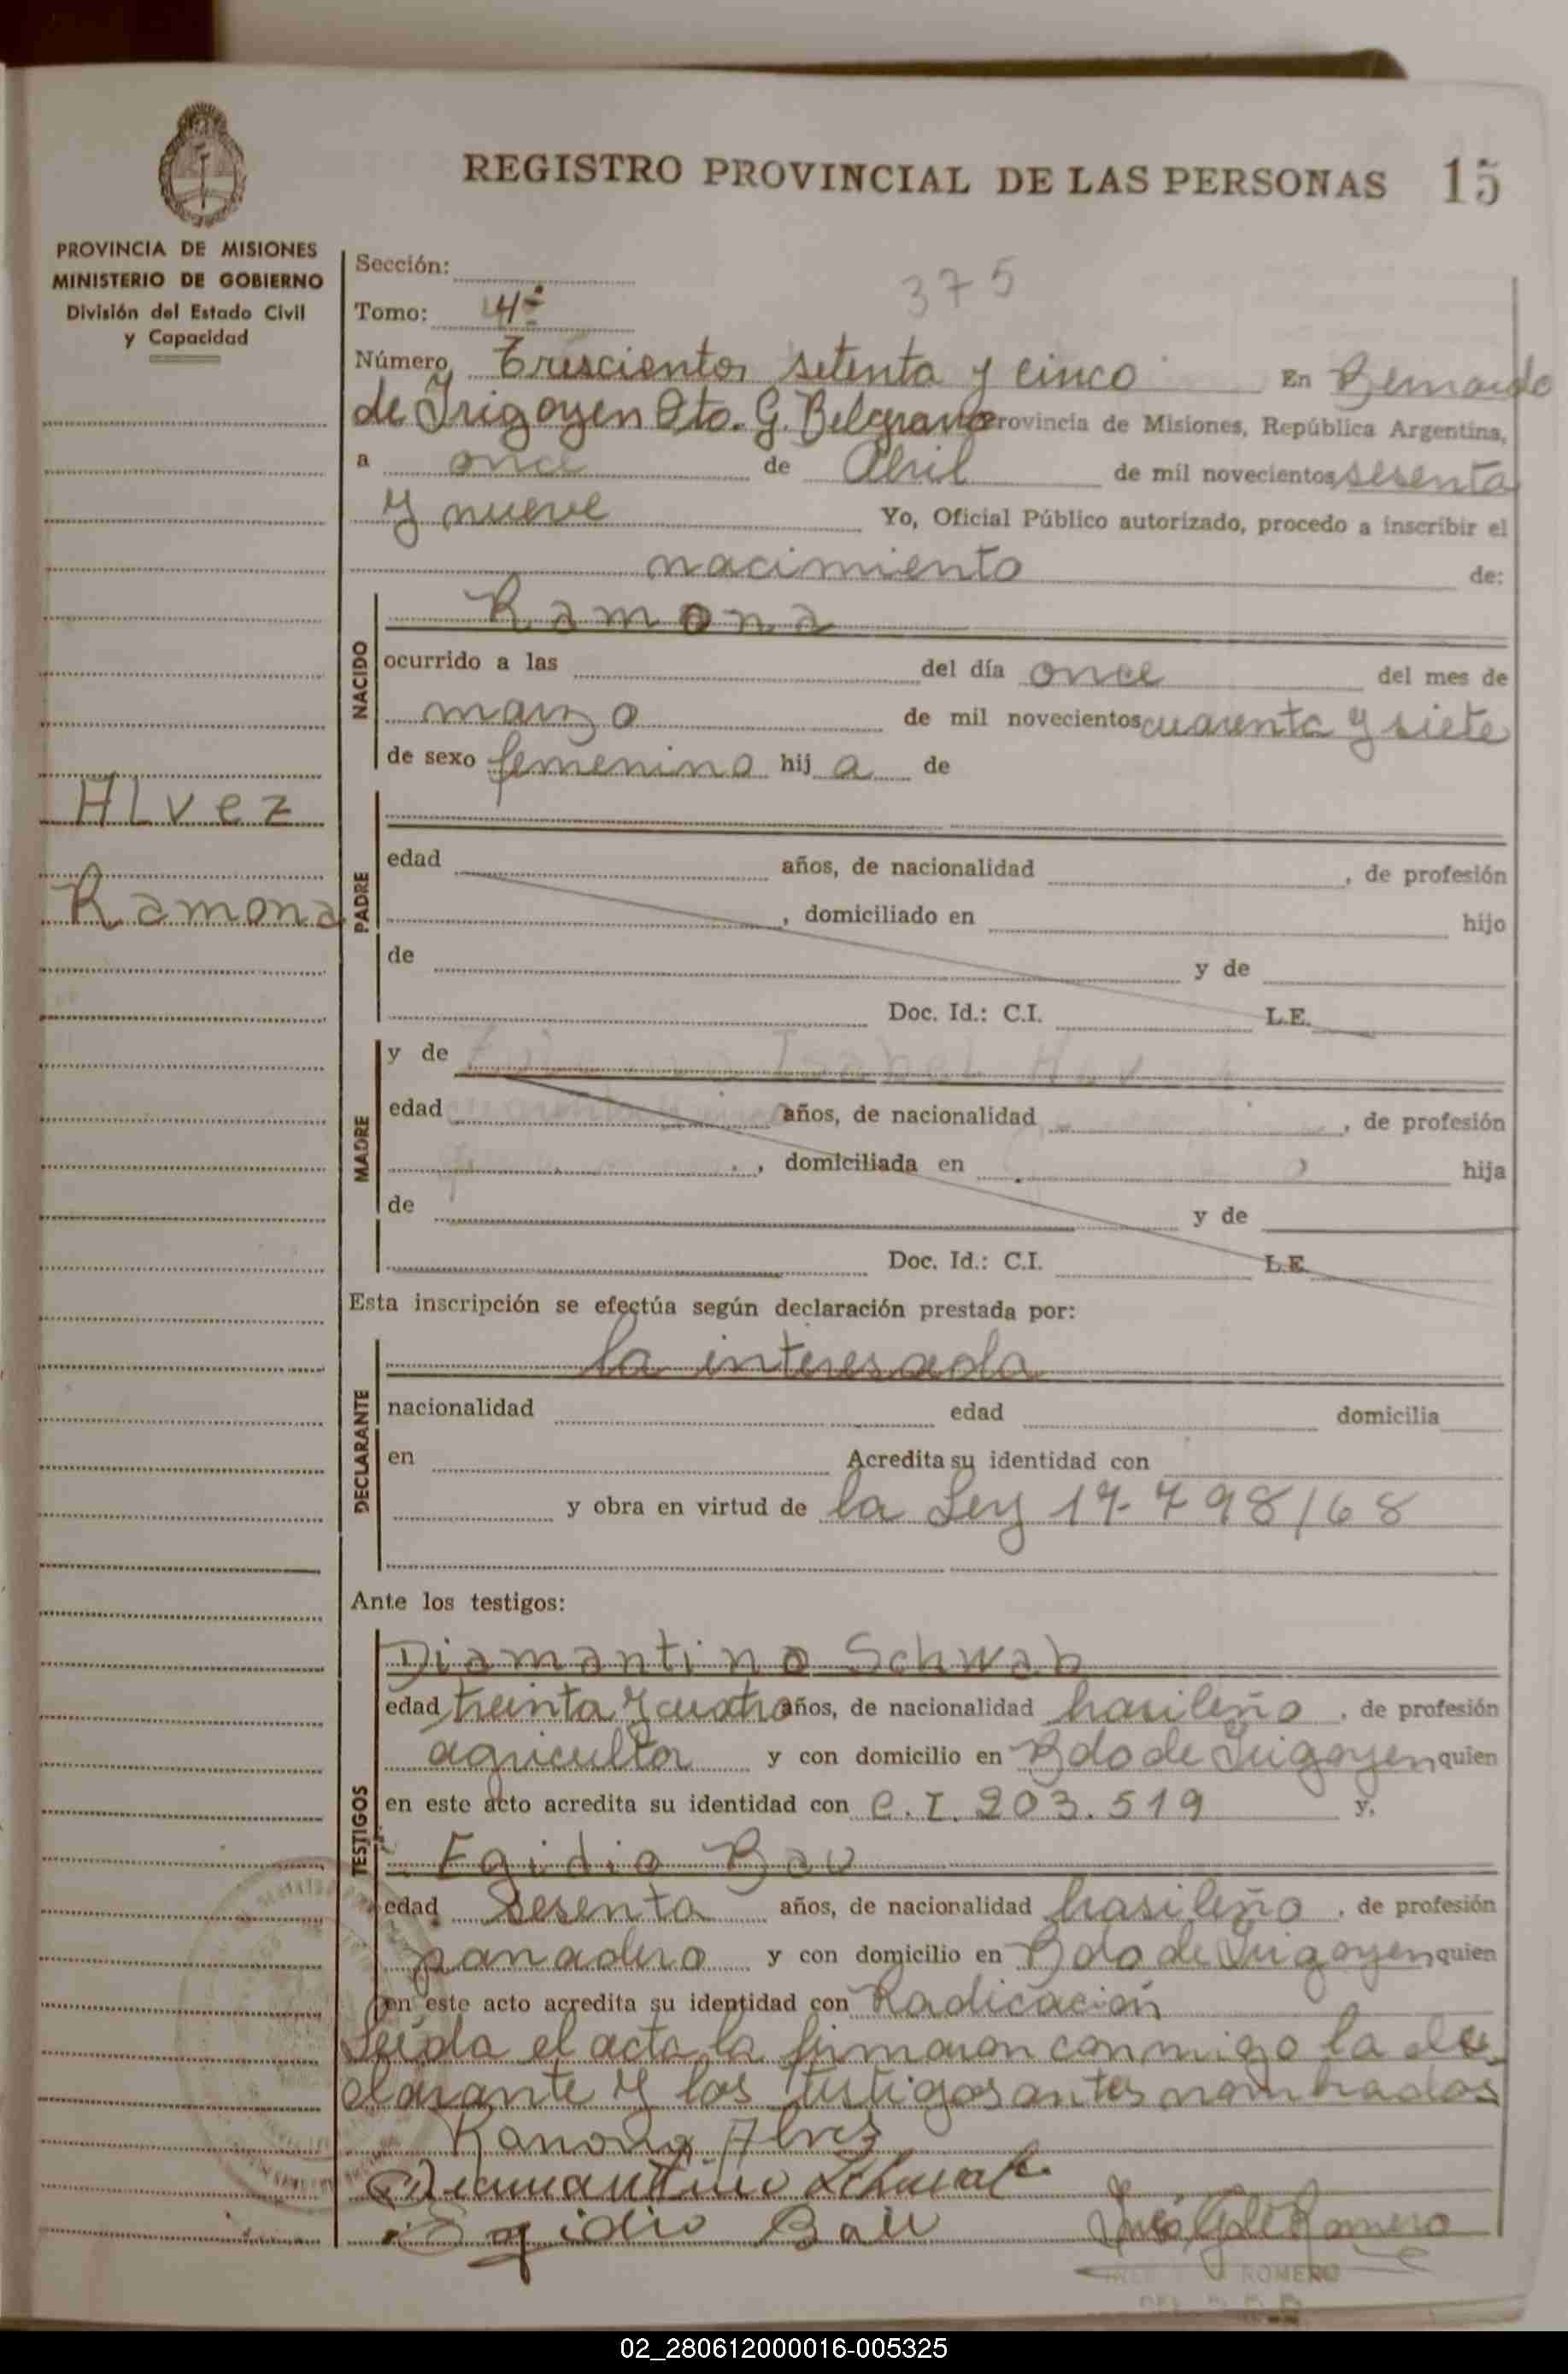 REGISTRO PROVINCIAL DE LAS PERSONAS 15
PROVINCIA DE MISIONES
MINISTERIO DE GOBIERNO
División del Estado Civil
y Capacidad
Sección:
375
Tomo: 4º
Número Trescientos setenta y cinco En Bernardo
de Irigoyen Dto. G. Belgrano Provincia de Misiones, República Argentina,
a once de Abril de mil novecientos sesenta
y nueve Yo, Oficial Público autorizado, procedo a inscribir el
nacimiento de:
NACIDO
Ramona
ocurrido a las del día once del mes de
marzo de mil novecientos cuarenta y siete
de sexo femenino hij a de
Alvez
Ramona
PADRE
edad años, de nacionalidad , de profesión
, domiciliado en hijo
de y de
Doc. Id.: C.I. L.E.
MADRE
y de Isabel
edad años, de nacionalidad , de profesión
, domiciliada en hija
de y de
Doc. Id.: C.I. L.E.
Esta inscripción se efectúa según declaración prestada por:
DECLARANTE
la interesada
nacionalidad edad domicilia
en Acredita su identidad con
y obra en virtud de la Ley 17.798/68
Ante los testigos:
TESTIGOS
Diamantino Schwab
edad treinta y cuatro años, de nacionalidad brasileño , de profesión
agricultor y con domicilio en Bdo de Irigoyen quien
en este acto acredita su identidad con C.I. 203.519 y,
Egidio Bau
edad sesenta años, de nacionalidad brasileño , de profesión
panadero y con domicilio en Bdo de Irigoyen quien
en este acto acredita su identidad con Radicación
Leída el acta la firmaron conmigo la de
clarante y los testigos antes nombrados
Ramona Alvez
Diamantino Schwab
Egidio Bau
Romero
ROMERO
02_280612000016-005325